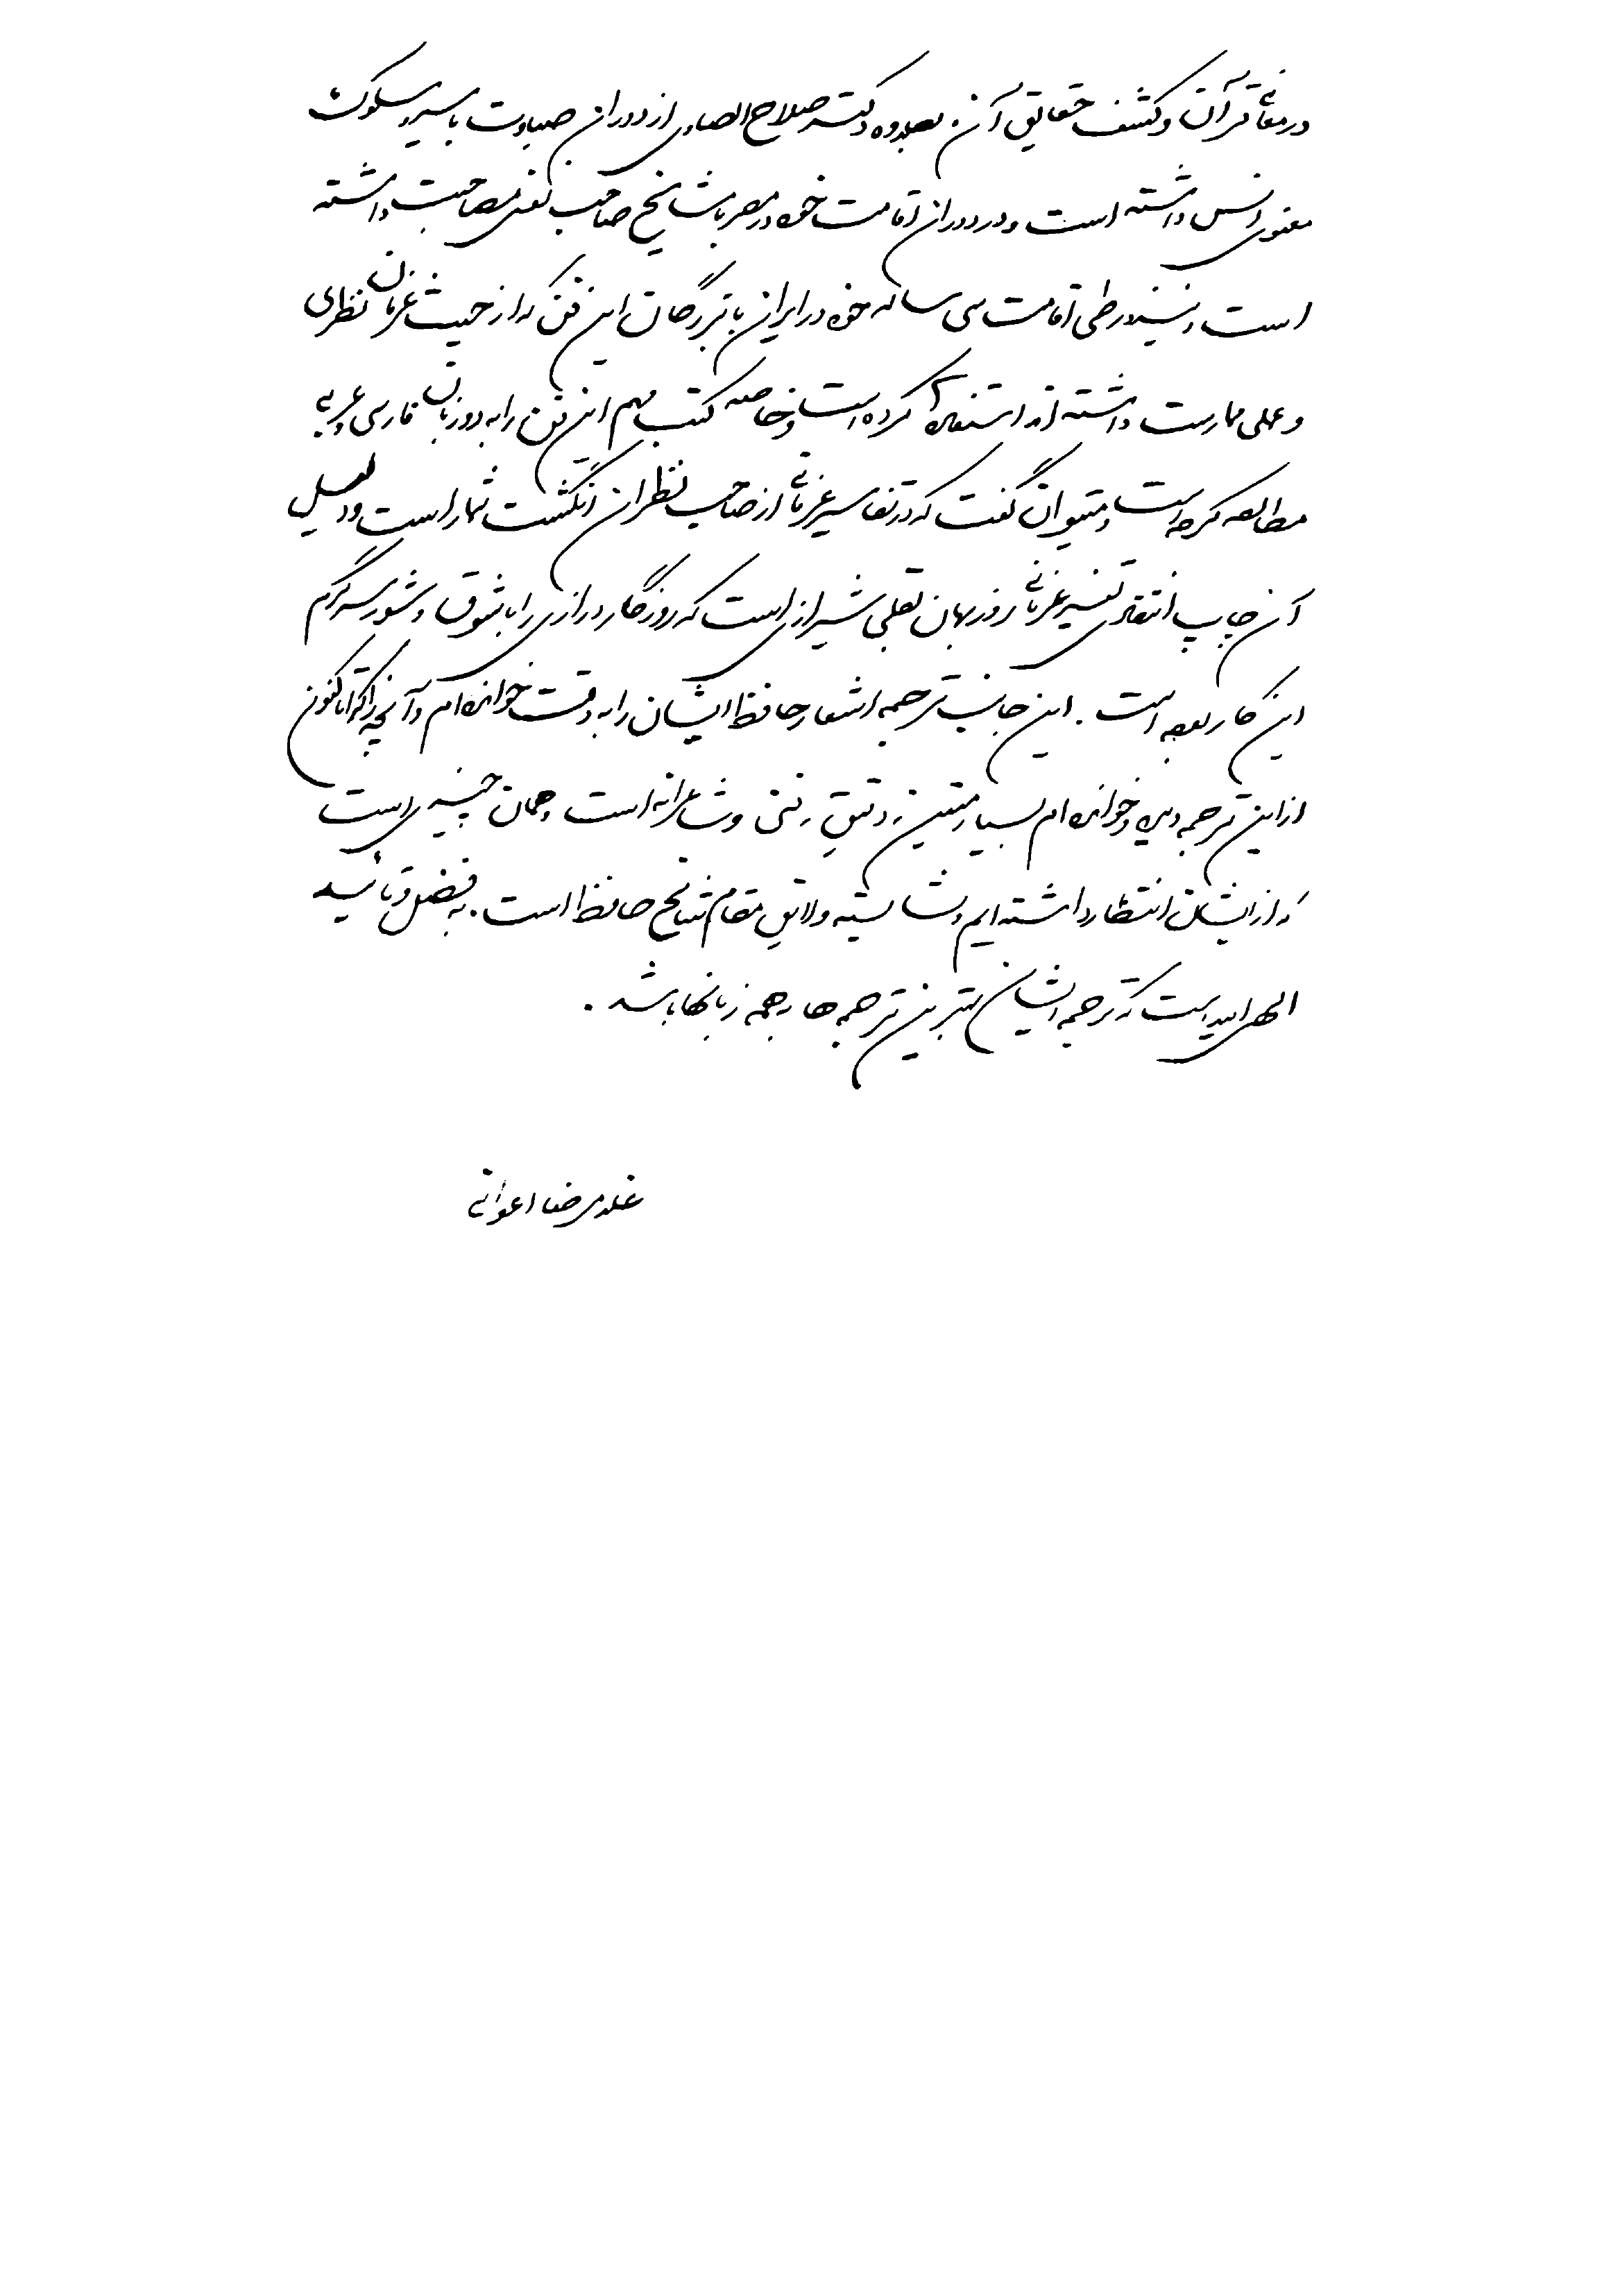 در معانی قرآن و کشف حقایق آن. بعلاوه دکتر صلاح الصاوی از دوران صباوت با سیر و سلوک
معنوی انس داشته است و در دوران اقامت خود در مصر با مشایخ صاحب نفس مصاحبت داشته
است و نیز در طی اقامت سی ساله خود در ایران با بزرگان این فن که از حیث عرفان نظری
و عملی ممارست داشته اند استفاده کرده است و خاصه کتب مهم این فن را به دو زبان فارسی و عربی
مطالعه کرده است و میتوان گفت که در تفاسیر عرفانی از صاحب نظران انگشت شمار است و دلیل
آن چاپ انتقادی تفسیر عرفانی روزبهان بقلی شیرازی است که روزگار درازی را با شوق و شور سرگرم
این کار بوده است. این جانب ترجمه اشعار حافظ ایشان را به دقت خوانده ام و آنچه را که تا کنون
از این ترجمه دیده و خوانده ام بسیار متین و دقیق و فنی و شاعرانه است و همان چیزی است
که از ایشان انتظار داشته ایم و شایسته و لایق مقام شامخ حافظ است. به فضل و تأیید
الهی امید است که ترجمه ایشان بهترین ترجمه ها در همه زبانها باشد.
غلامرضا اعوانی